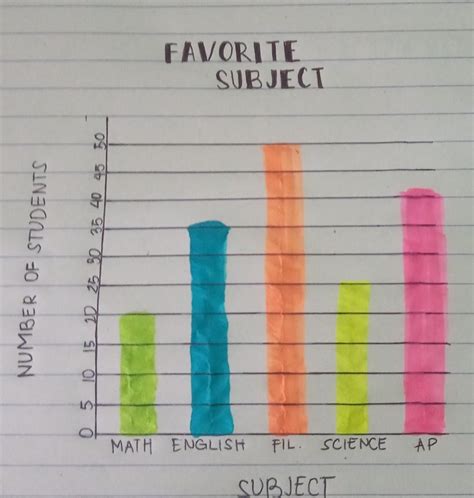 FAVORITE
SUBJECT
NUMBER OF STUDENTS
50
45
40
35
30
25
20
15
10
5
0
MATH ENGLISH FIL. SCIENCE AP
SUBJECT